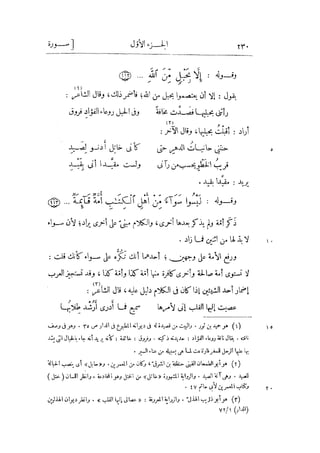 ٢٣٠ الجزء الأول [ سورة
وقوله : إِلَّا بِحَبْلٍ مِّنَ ٱللَّهِ ... (١١٢)
يقول : إلا أن يعتصموا بحبل من الله؛ فأضمر ذلك، وقال الشاعر (١) :
رأتنى بحبليها فصدّت مخافة وفى الحبل روعاء الفؤاد فروق
أراد : أقبلتُ بحبليها، وقال الآخر (٢) :
٥ حنتنى حانيات الدهر حتى كأنى خاتل أدنو لصيد
قريبُ الخطو يحسب من رآنى ولست مقيدا أنى بقيد
يريد : مقيدا بقيد .
وقوله : لَيْسُوا سَوَاءً مِّنْ أَهْلِ ٱلْكِتَٰبِ أُمَّةٌ قَائِمَةٌ ... (١١٣)
ذكر أمة ولم يذكر بعدها أخرى، والكلام مبنىّ على أخرى يراد؛ لأن سواء
١٠ لا بدّ لها من اثنين فما زاد .
ورفع الأمة على وجهين؛ أحدهما أنك تكرّه على سواء كأنك قلت :
لا تستوى أمة صالحة وأخرى كافرة منها أمة كذا وأمة كذا، وقد تستجيز العرب
إضمار أحد الشيئين إذا كان فى الكلام دليل عليه، قال الشاعر (٣) :
عصيت إليها القلب إنى لأمرها سميع فما أدرى أرُشد طِلابها
١٥ (١) هو حميد بن ثور . والبيت من قصيدة له فى ديوانه المطبوع فى الدار ص ٣٥ . وهو فى وصف
ناقته . يقال ناقة روعاء الفؤاد : حديدته ذكية . وفروق : خائفة . كأنه يريد أنه جاء بالحبال التى يشدّ
بها عليها الرحل للسفر فارتاعت لما هى بسبيله من عناء السير .
(٢) هو أبو الطمحان القينىّ حنظلة بن الشرقىّ، وكان من المعمرين . و«حابل» أى ينصب الحبالة
للصيد . وهى آلة الصيد . والرواية المشهورة «خاتل» من الختل وهو المخادعة . وانظر اللسان (ختل)
٢٠ وكتاب المعمرين لأبى حاتم ٥٧ .
(٣) هو أبو ذؤيب الهذلىّ . والرواية المعروفة : «عصانى إليها القلب» . وانظر ديوان الهذليين
(الدار) ٧٢/١